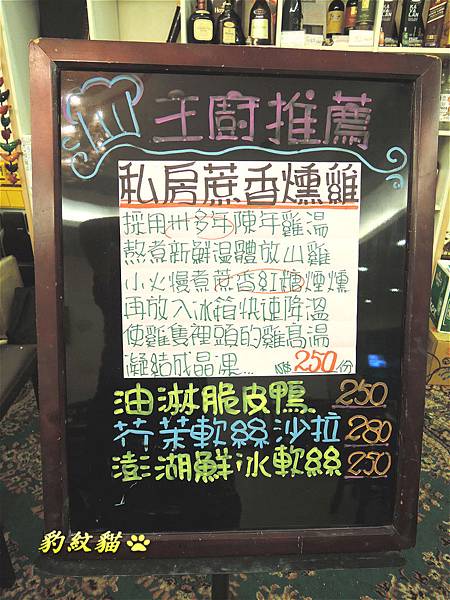 主廚推薦
私房蔗香燻雞
採用卅多年陳年雞湯
熬煮新鮮溫體放山雞
小火慢煮蔗香紅糖煙燻
再放入冰箱快速降溫
使雞隻裡頭的雞高湯
凝結成晶凍... NT$250/份
油淋脆皮鴨 250
芥茉軟絲沙拉 280
澎湖鮮冰軟絲 250
豹紋貓